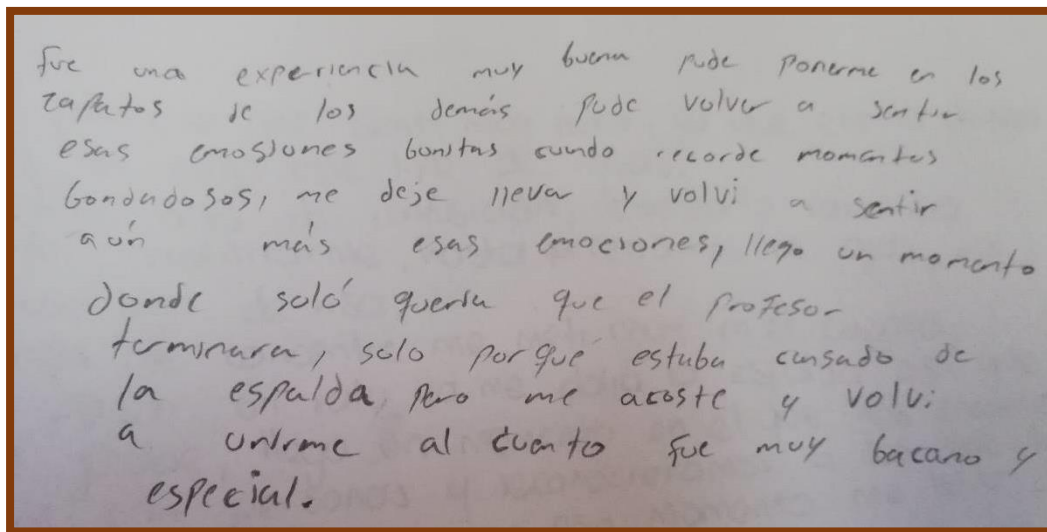 fue una experiencia muy buena pude ponerme en los
zapatos de los demás pude volver a sentir
esas emosiones bonitas cundo recorde momentos
bondadosos, me deje lleva y volvi a sentir
aún más esas emociones, llego un momento
donde soló queria que el profesor
terminara, solo porqué estaba cansado de
la espalda, pero me acoste y volvi
a unirme al cuento fue muy bacano y
especial.